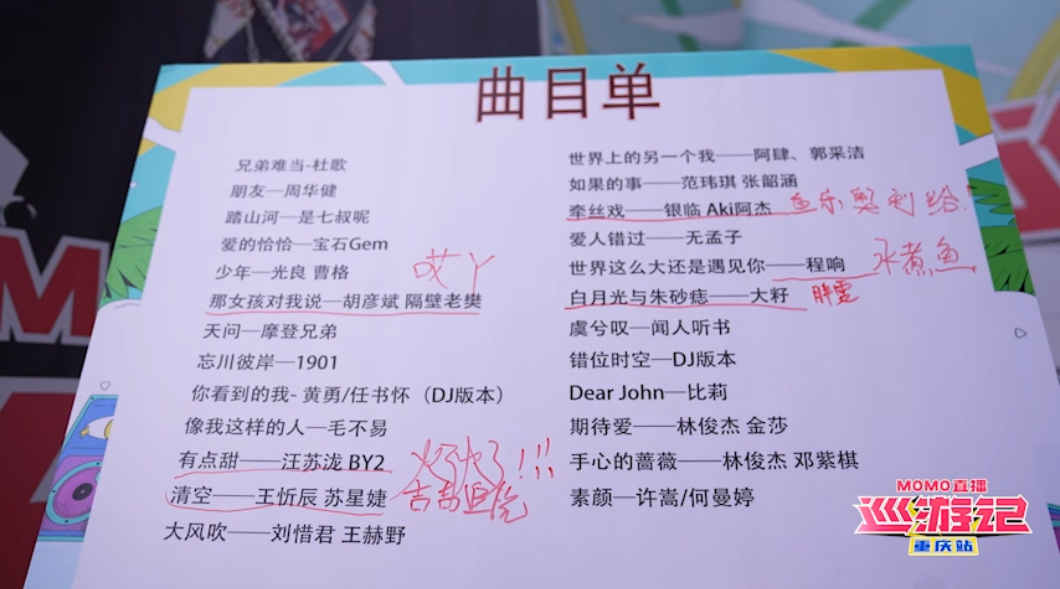 曲目单
兄弟难当-杜歌
朋友—周华健
踏山河—是七叔呢
爱的恰恰—宝石Gem
少年—光良 曹格
哎丫
那女孩对我说—胡彦斌 隔壁老樊
天问—摩登兄弟
忘川彼岸—1901
你看到的我- 黄勇/任书怀（DJ版本）
像我这样的人—毛不易
有点甜——汪苏泷 BY2
火了火了!!!
清空——王忻辰 苏星婕
大风吹——刘惜君 王赫野
世界上的另一个我——阿肆、郭采洁
如果的事——范玮琪 张韶涵
牵丝戏——银临 Aki阿杰 鱼乐奥利给!
爱人错过——无孟子
世界这么大还是遇见你——程响 水煮鱼
白月光与朱砂痣——大籽 胖雯
虞兮叹—闻人听书
错位时空—DJ版本
Dear John—比莉
期待爱——林俊杰 金莎
手心的蔷薇——林俊杰 邓紫棋
素颜—许嵩/何曼婷
MOMO直播
巡游记
重庆站